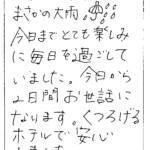 まさかの大雨
今日までとても楽しみ
に毎日を過ごして
いました。今日から
2日間お世話に
なります。くつろげる
ホテルで安心
しました